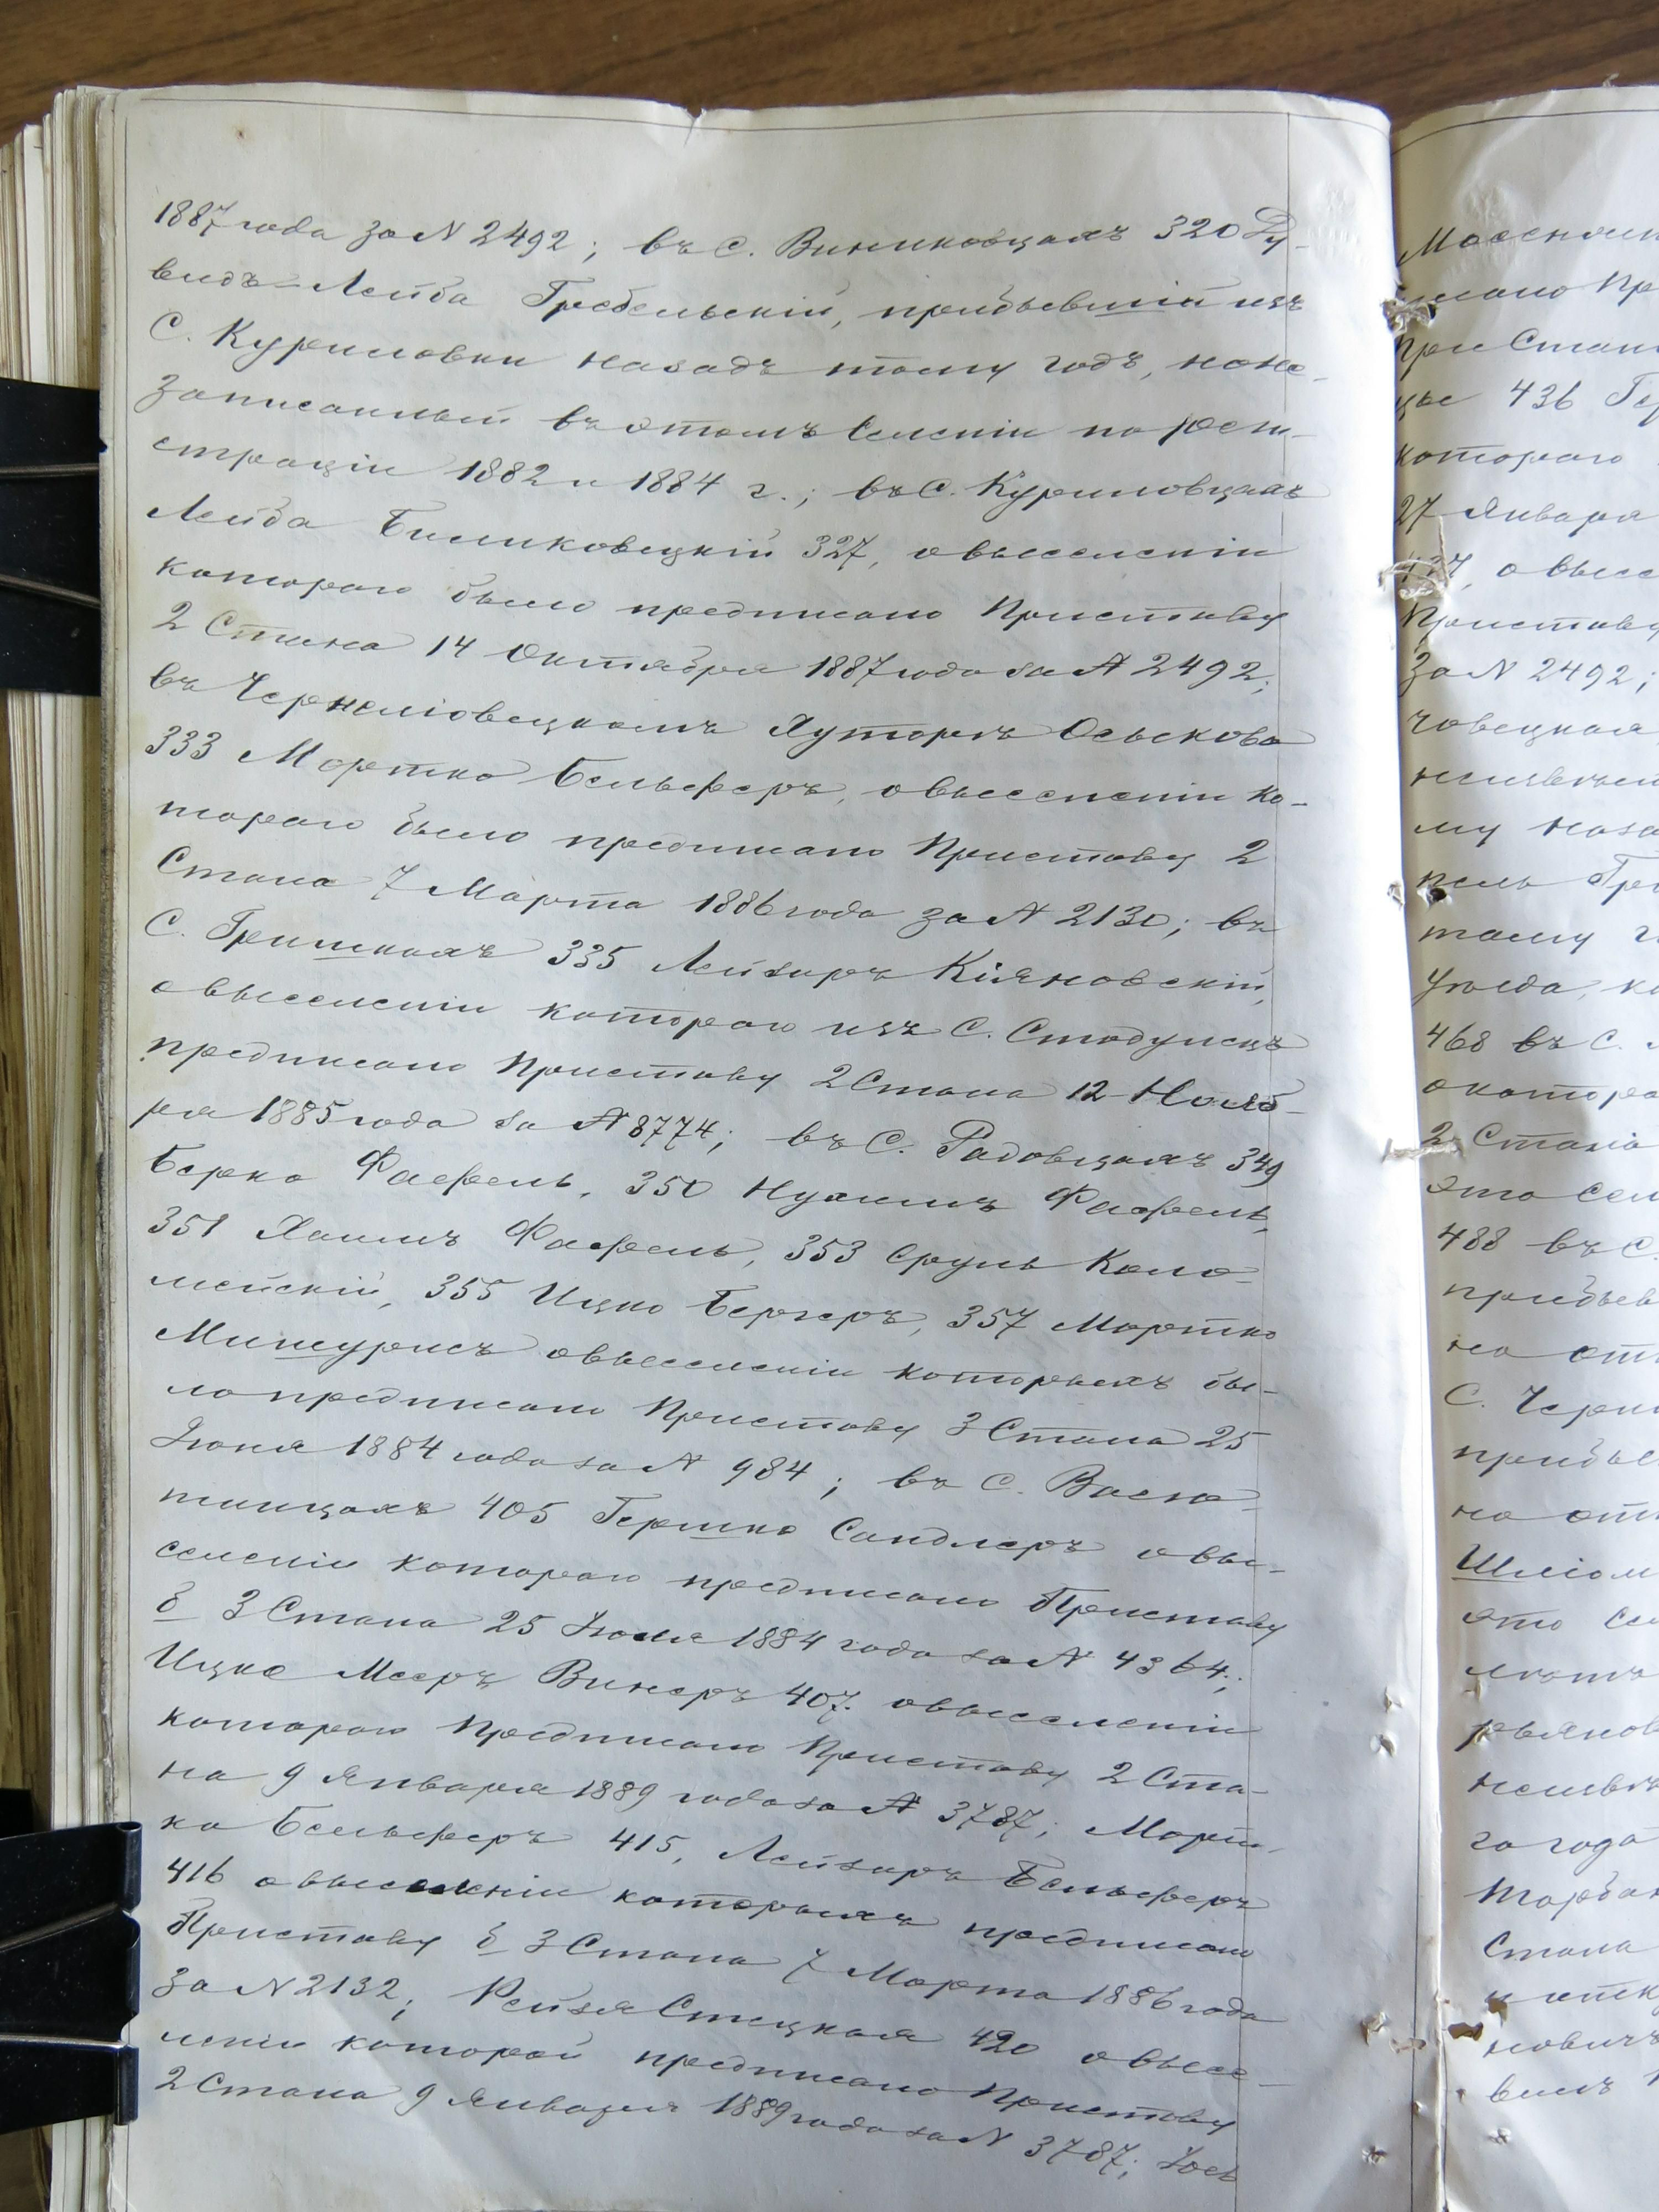 1887 года за N 2492; въ С. Винниковцахъ 320 Ду-
видъ-Лейба Гребельскій, прибывшій изъ
С. Куриловки назадъ тому годъ, но не-
записанный въ этомъ Селеніи по реги-
страціи 1882 и 1884 г.; въ С. Куриловцахъ
Лейба Биликовецкій 327, о выселеніи
котораго было предписано Приставу
2 Стана 14 Октября 1887 года за N 2492;
въ Чернелювецкомъ Хуторѣ Оськова
333 Мортко Бельферъ, о выселеніи ко-
тораго было предписано Приставу 2
Стана 7 Марта 1886 года за N 2130; въ
С. Гришкахъ 335 Лейзаръ Кіяновскій,
о выселеніи котораго изъ С. Стодулецъ
предписано Приставу 2 Стана 12 Нояб-
ря 1885 года за N 8774; въ С. Радовцахъ 349
Берко Фасфель, 350 Нухимъ Фасфель,
351 Хаимъ Фасфель, 353 Сруль Коло-
мейскій, 355 Ицко Бергеръ, 357 Мортко
Миншурисъ о выселеніи которыхъ бы-
ло предписано Приставу 3 Стана 25
Іюня 1884 года за N 984; въ С.
405 Гершко Сандлеръ о вы-
селеніи котораго предписано Приставу
б 3 Стана 25 Іюня 1884 года за N 4364;
Ицко Мееръ Винеръ 407. о выселеніи
котораго Предписано Приставу 2 Ста-
на 9 Января 1889 года за N 3787; Морт-
ко Бельферъ 415, Лейзаръ Бельферъ
416 о выселеніи которыхъ предписано
Приставу б 3 Стана 7 Марта 1886 года
за N 2132; Рейзя Стецкая 420 о высе-
леніи которой предписано Приставу
2 Стана 9 Января 1889 года за N 3787; Іось
пано Пр
при Стан
цѣ 436 Ге
котораго
27 Января
о высе
Приставу
за N 2492;
човецкая
му наза
тому г
Уѣзда, ко
468 въ С.
о которо
2 Стана
это Сел
488 въ С.
прибыв
но отп
С. Черн
прибы
но отп
Шліом
это Се
го года
Стана